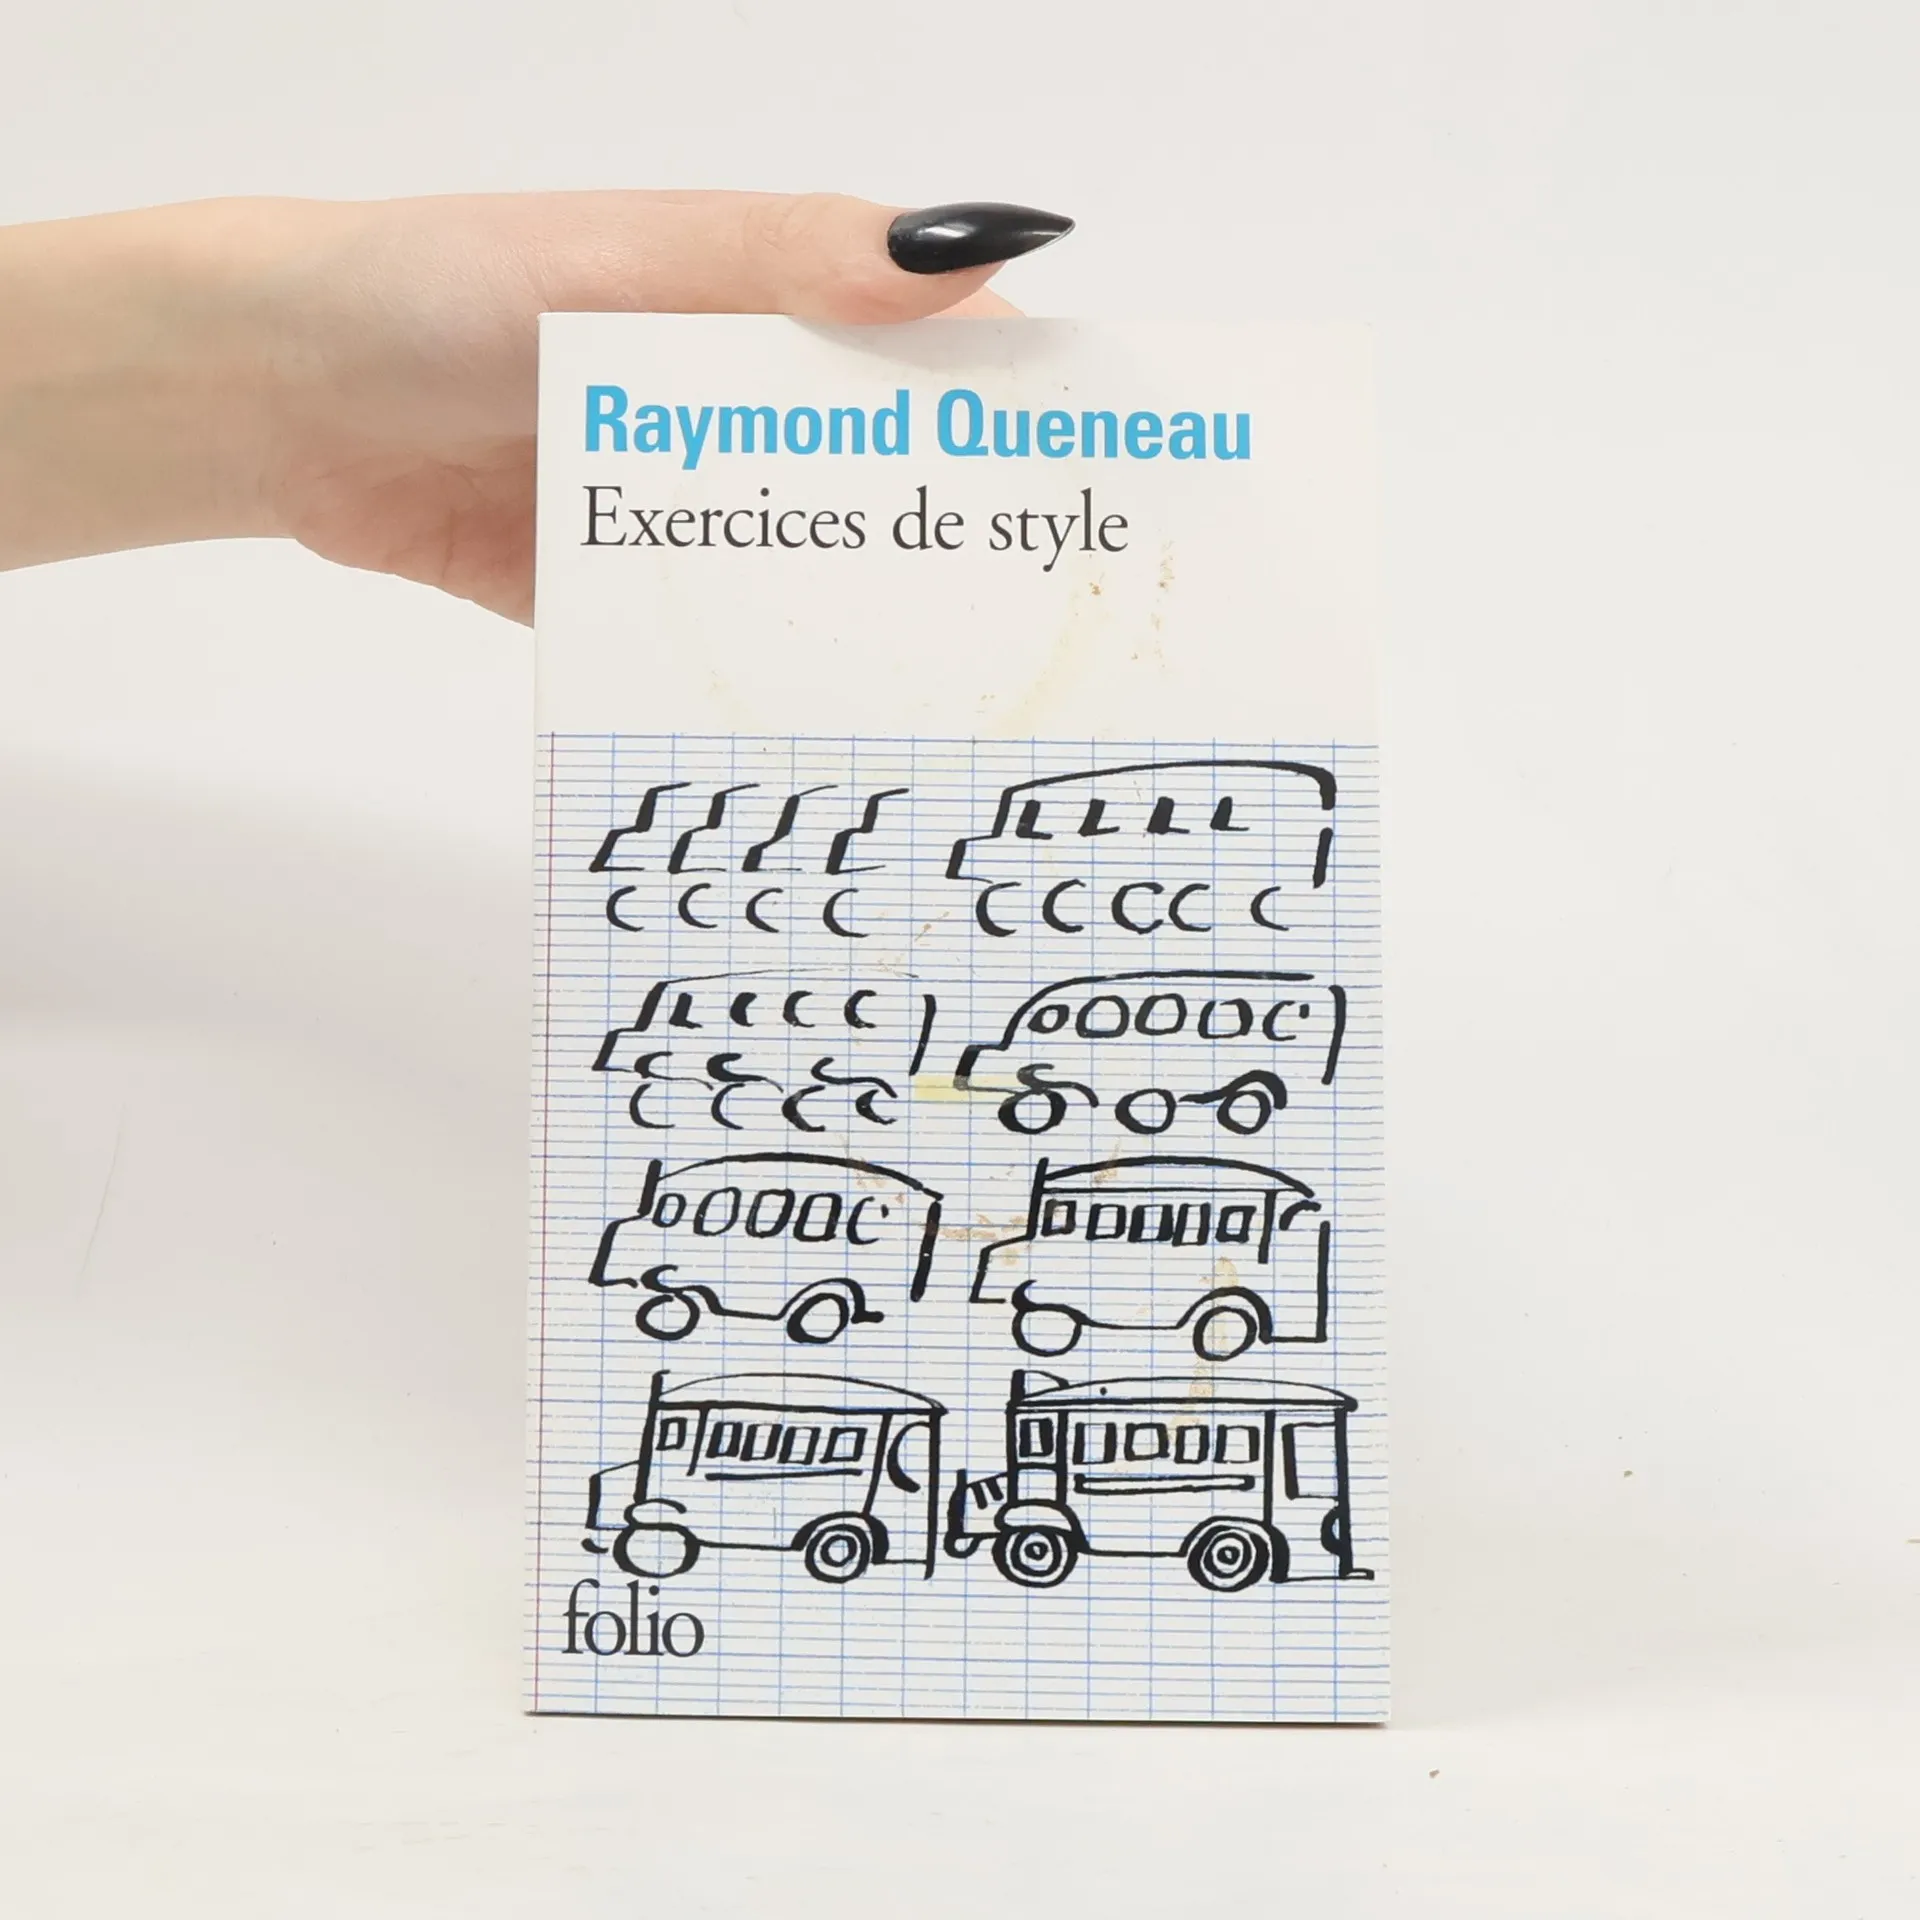 Raymond Queneau
Exercices de style
folio